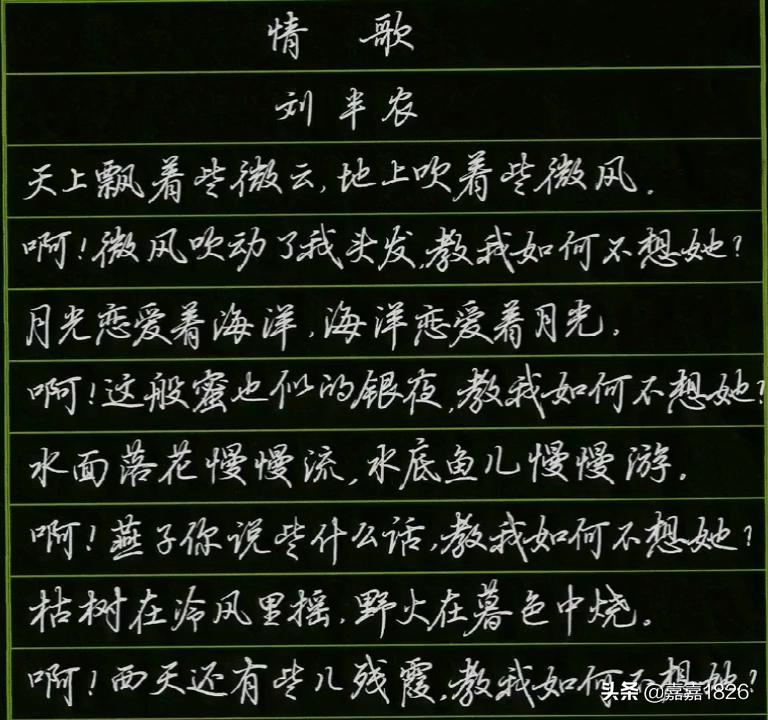 情 歌
刘半农
天上飘着些微云,地上吹着些微风.
啊!微风吹动了我头发,教我如何不想她?
月光恋爱着海洋,海洋恋爱着月光。
啊!这般蜜也似的银夜,教我如何不想她?
水面落花慢慢流,水底鱼儿慢慢游。
啊!燕子你说些什么话,教我如何不想她?
枯树在冷风里摇,野火在暮色中烧。
啊!西天还有些儿残霞,教我如何不想她?
头条 @嘉嘉1826